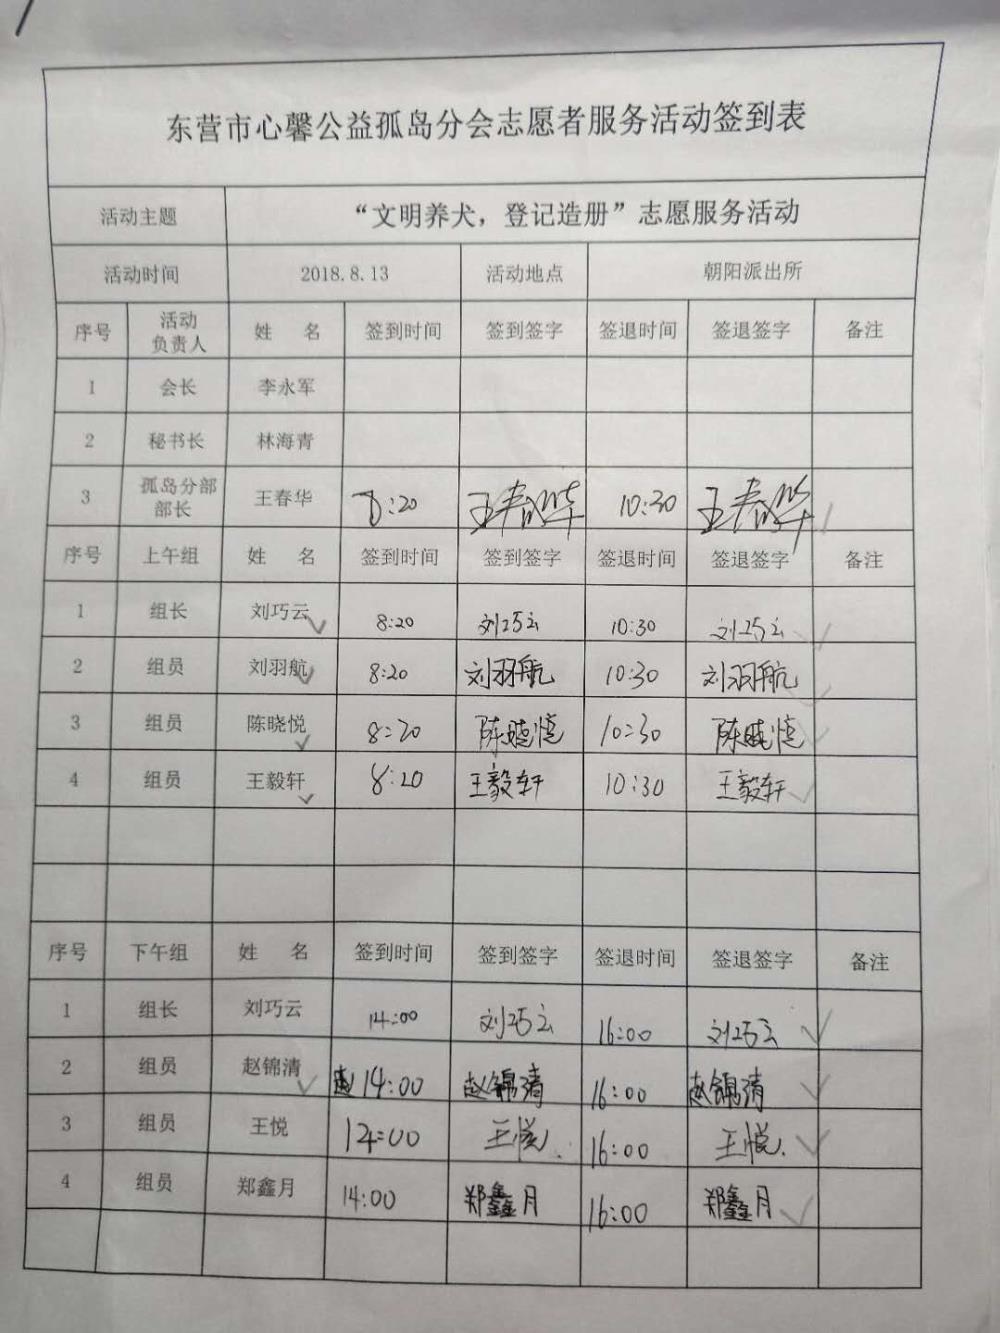 东营市心馨公益孤岛分会志愿者服务活动签到表
活动主题 “文明养犬，登记造册”志愿服务活动
活动时间 2018.8.13 活动地点 朝阳派出所
序号 活动负责人 姓 名 签到时间 签到签字 签退时间 签退签字 备注
1 会长 李永军
2 秘书长 林海青
3 孤岛分部部长 王春华 8:20 王春华 10:30 王春华
序号 上午组 姓 名 签到时间 签到签字 签退时间 签退签字 备注
1 组长 刘巧云 8:20 刘巧云 10:30 刘巧云
2 组员 刘羽航 8:20 刘羽航 10:30 刘羽航
3 组员 陈晓悦 8:20 陈晓悦 10:30 陈晓悦
4 组员 王毅轩 8:20 王毅轩 10:30 王毅轩
序号 下午组 姓 名 签到时间 签到签字 签退时间 签退签字 备注
1 组长 刘巧云 14:00 刘巧云 16:00 刘巧云
2 组员 赵锦清 赵 14:00 赵锦清 16:00 赵锦清
3 组员 王悦 14:00 王悦. 16:00 王悦.
4 组员 郑鑫月 14:00 郑鑫月 16:00 郑鑫月